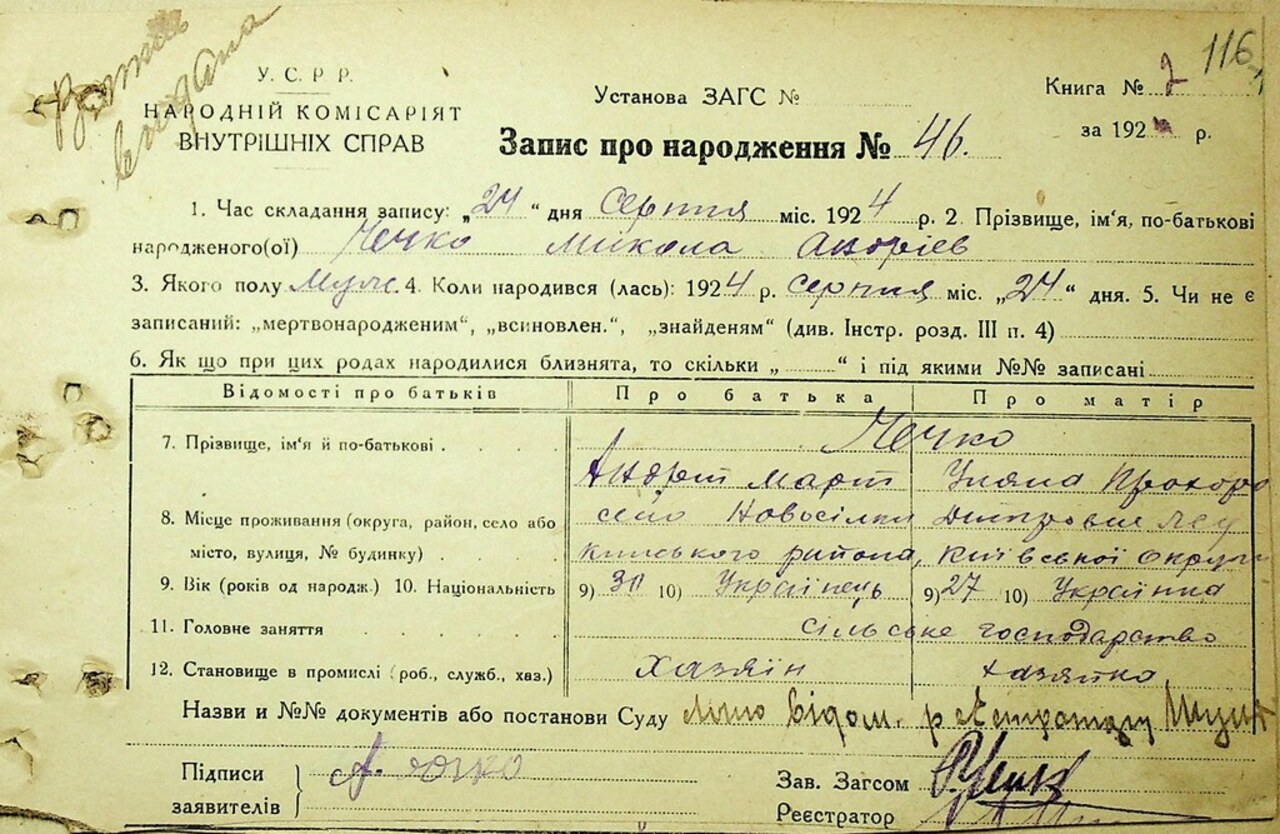 116
Витяг видана
У.С.Р.Р.
НАРОДНІЙ КОМІСАРІЯТ
ВНУТРІШНІХ СПРАВ
Установа ЗАГС №
Книга № 2
за 192 р.
Запис про народження № 46.
1. Час складання запису: „24“ дня Серпня міс. 1924 р. 2. Прізвище, ім'я, по-батькові
народженого(ої) Чечко Микола Андрієв
3. Якого полу Муж. 4. Коли народився (лась): 1924 р. Серпня міс. „24“ дня. 5. Чи не є
записаний: „мертвонародженим“, „всиновлен.“, „знайденям“ (див. Інстр. розд. III п. 4)
6. Як що при цих родах народилися близнята, то скільки „ “ і під якими №№ записані
Відомості про батьків Про батька Про матір
7. Прізвище, ім'я й по-батькові Чечко
Андрей Март Уляна Прохоро
8. Місце проживання (округа, район, село або село Новосілки
місто, вулиця, № будинку) району, Київської округи
9. Вік (років од народж.) 10. Національність 9) 30 10) Українець 9) 27 10) Українка
11. Головне заняття сільське господарство
12. Становище в промислі (роб., служб., хаз.) хазяїн хазяйка
Назви и №№ документів або постанови Суду відом.
Підписи
заявителів
А. Чечко
Зав. Загсом
Реєстратор